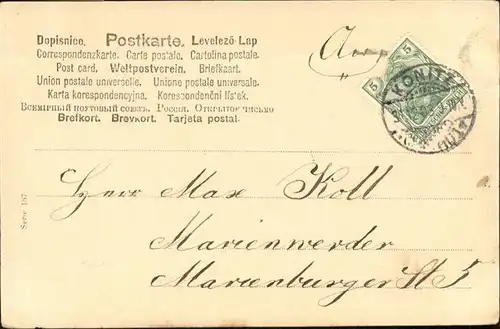 Dopisnice. Postkarte. Levelező-Lap
Correspondenzkarte. Carte postale. Cartolina postale.
Post card. Weltpostverein. Briefkaart.
Union postale universelle. Unione postale universale.
Karta korespondencyjna. Korespondenční lístek.
Всемірный почтовый союзъ. Россія. Открытое письмо
Brefkort. Brevkort. Tarjeta postal.
5
5
KONITZ
Herr Max Koll
Marienwerder
Marienburger St 5
Serie 187